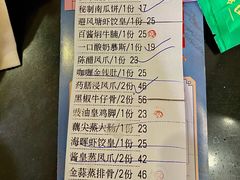 秘制南瓜饼/1份 17
避风塘虾饺皇/1份 25
百酱焗牛腩/1份 25
一口酸奶慕斯/1份 19
陈醋凤爪/1份 23
咖喱金钱肚/1份 25
药膳浸凤爪/2份 46
黑椒牛仔骨/1份 25
豉油皇鸡脚/1份 23
藕尖蒸大肠/1份 23
海晖虾饺皇/1份 25
酱皇蒸凤爪/2份 46
金蒜蒸排骨/2份